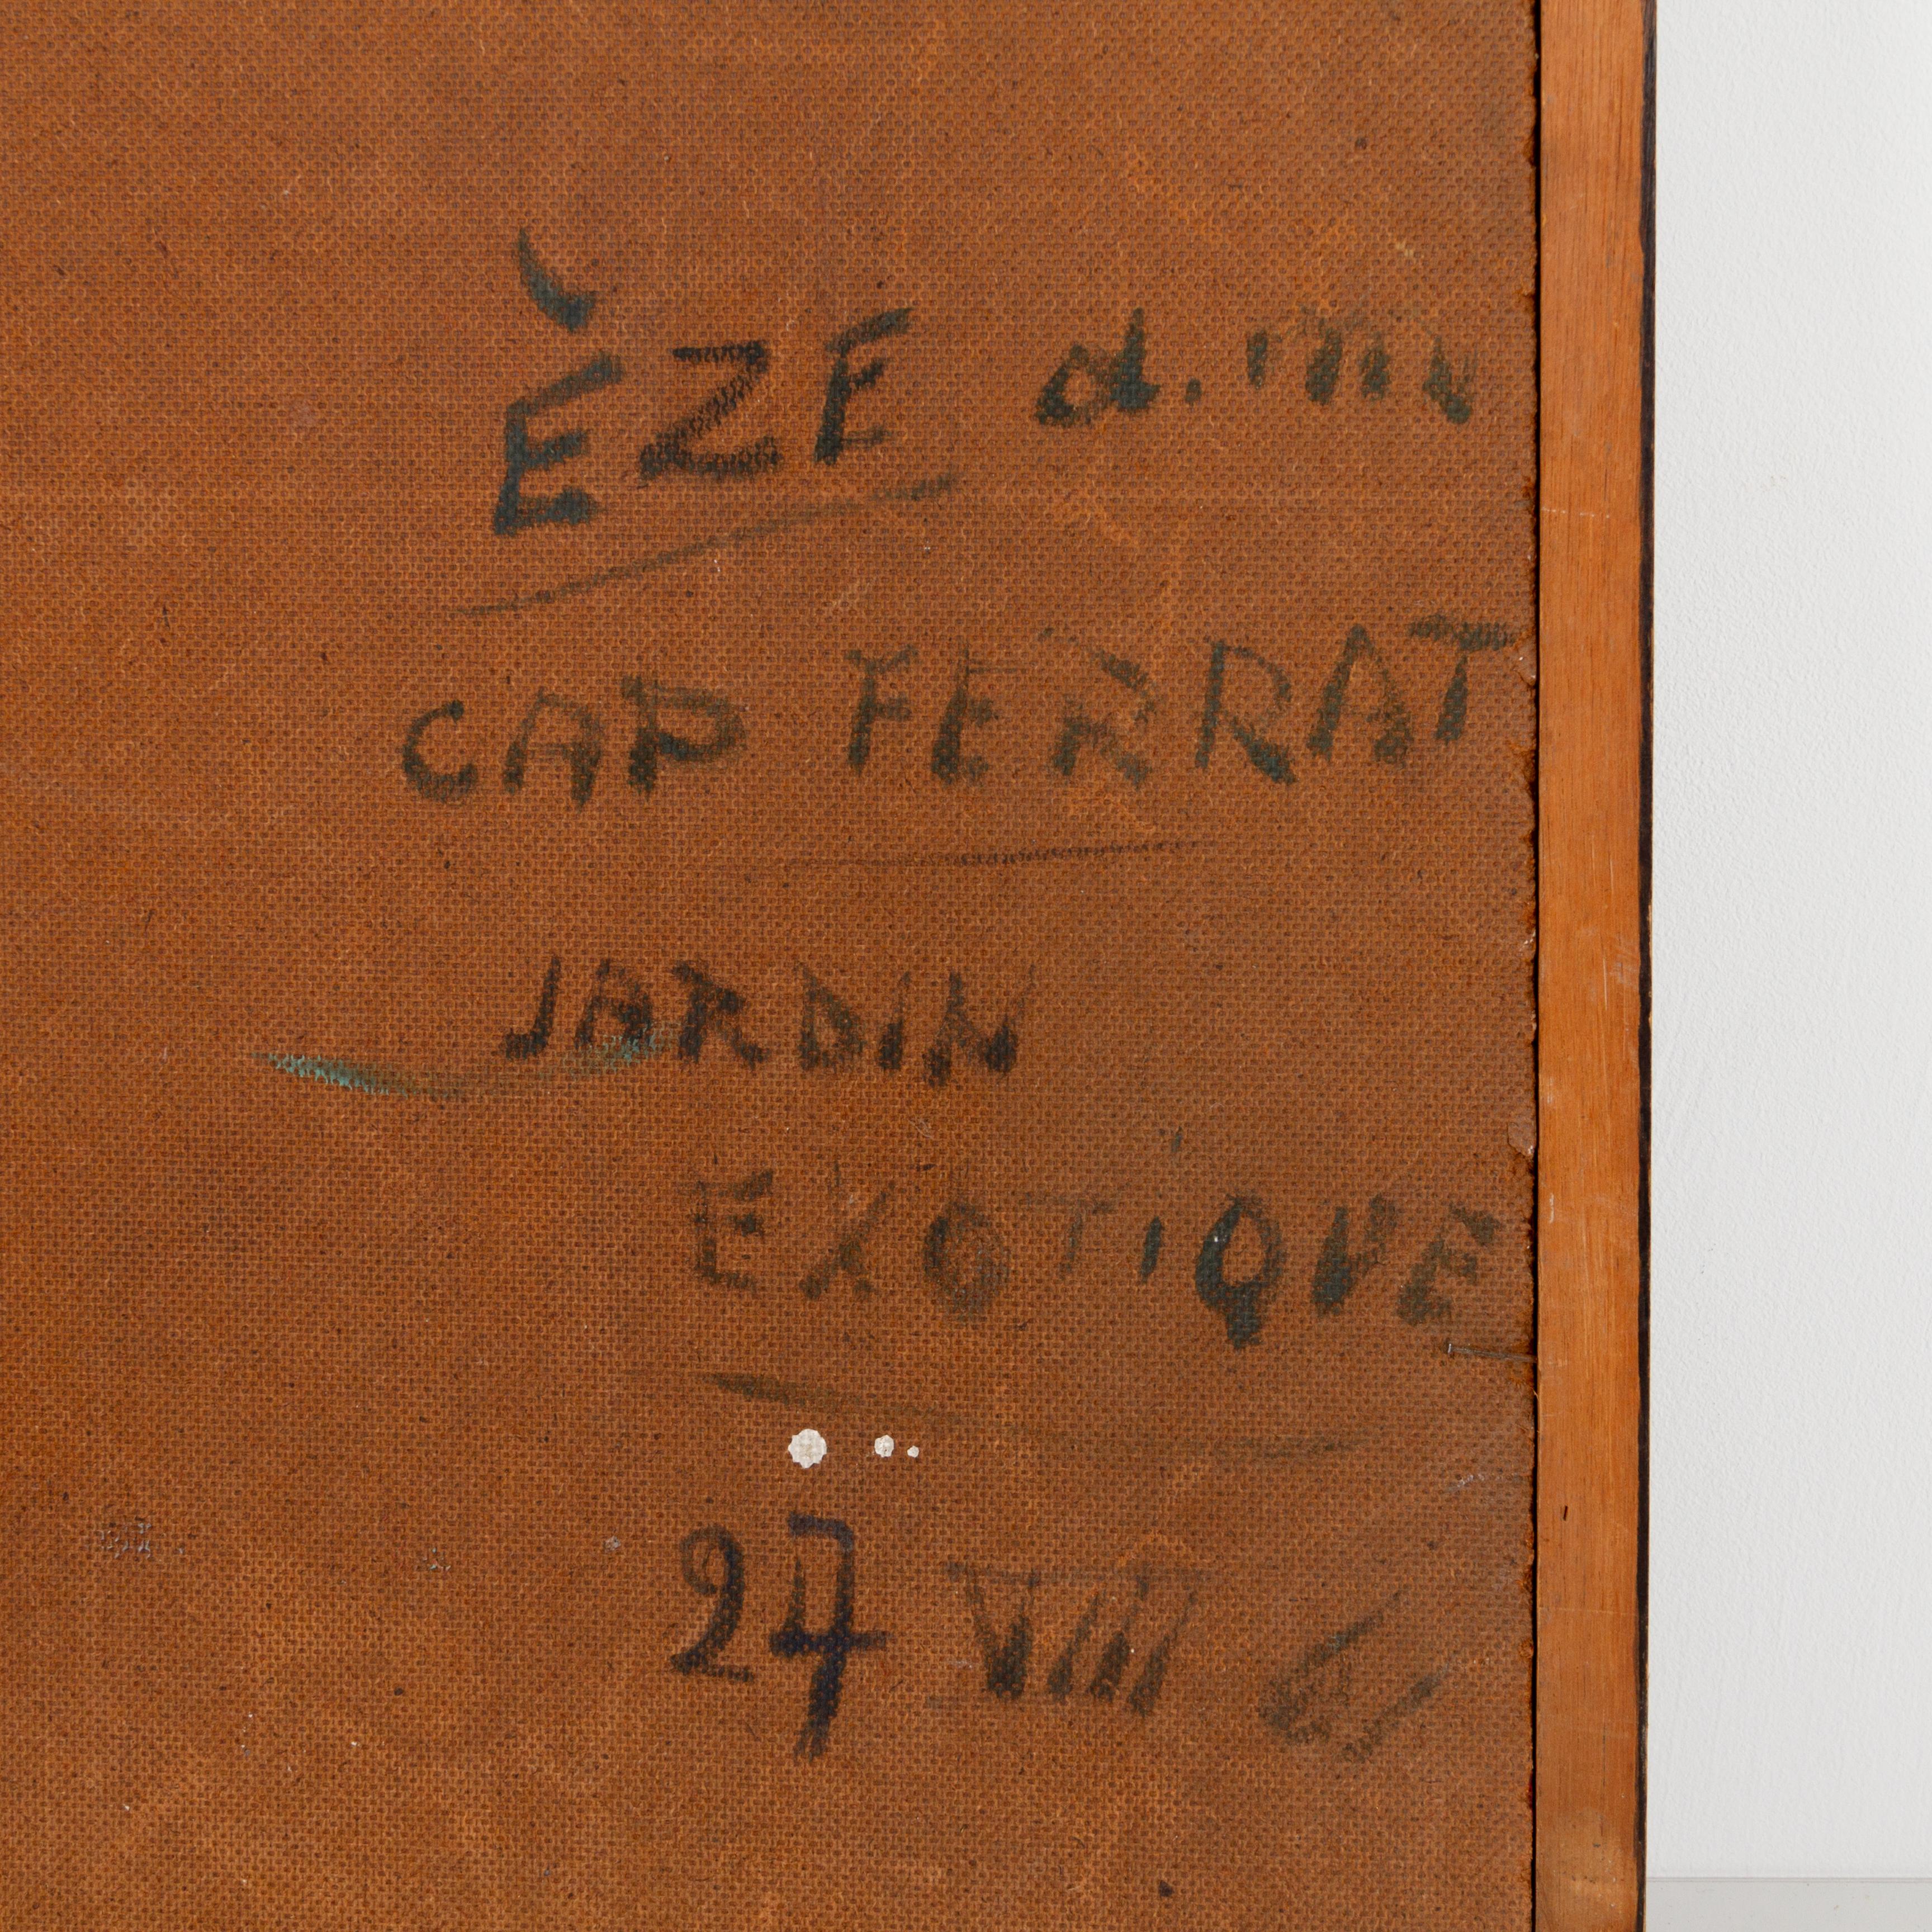 ÈZE
CAP FERRAT
JARDIN
EXOTIQUE
27 VIII 61